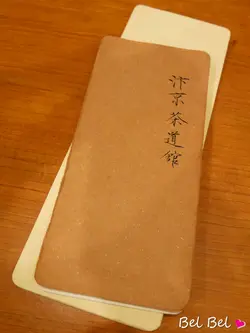 汴京茶道館
Bel Bel